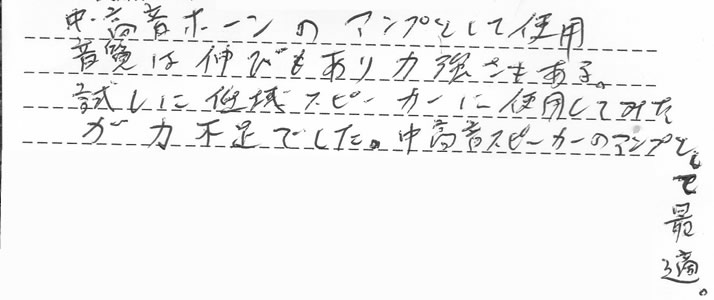 中・高音ホーンのアンプとして使用
音覧は伸びもあり力強さもある。
試しに低域スピーカーに使用してみた
が力不足でした。中高音スピーカーのアンプと
して最適。